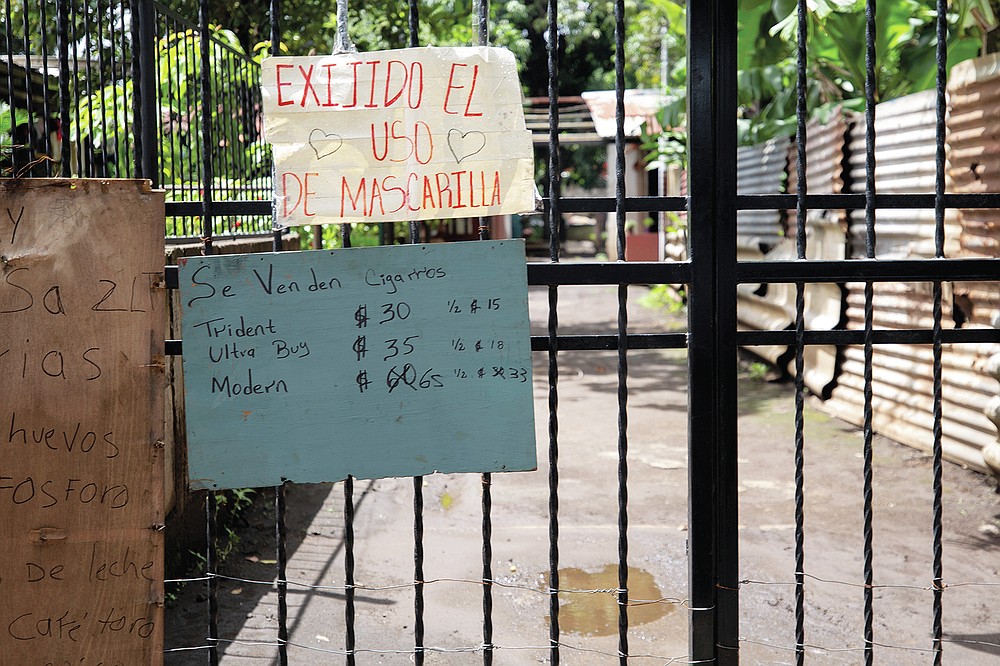 EXIJIDO EL
USO
DE MASCARILLA
Se Venden Cigarrios
Trident $ 30 1/2 $ 15
Ultra Buy $ 35 1/2 $ 18
Modern $ 65 1/2 $ 33
y
Sa zL
rias
huevos
FOSFORO
De leche
Café toro